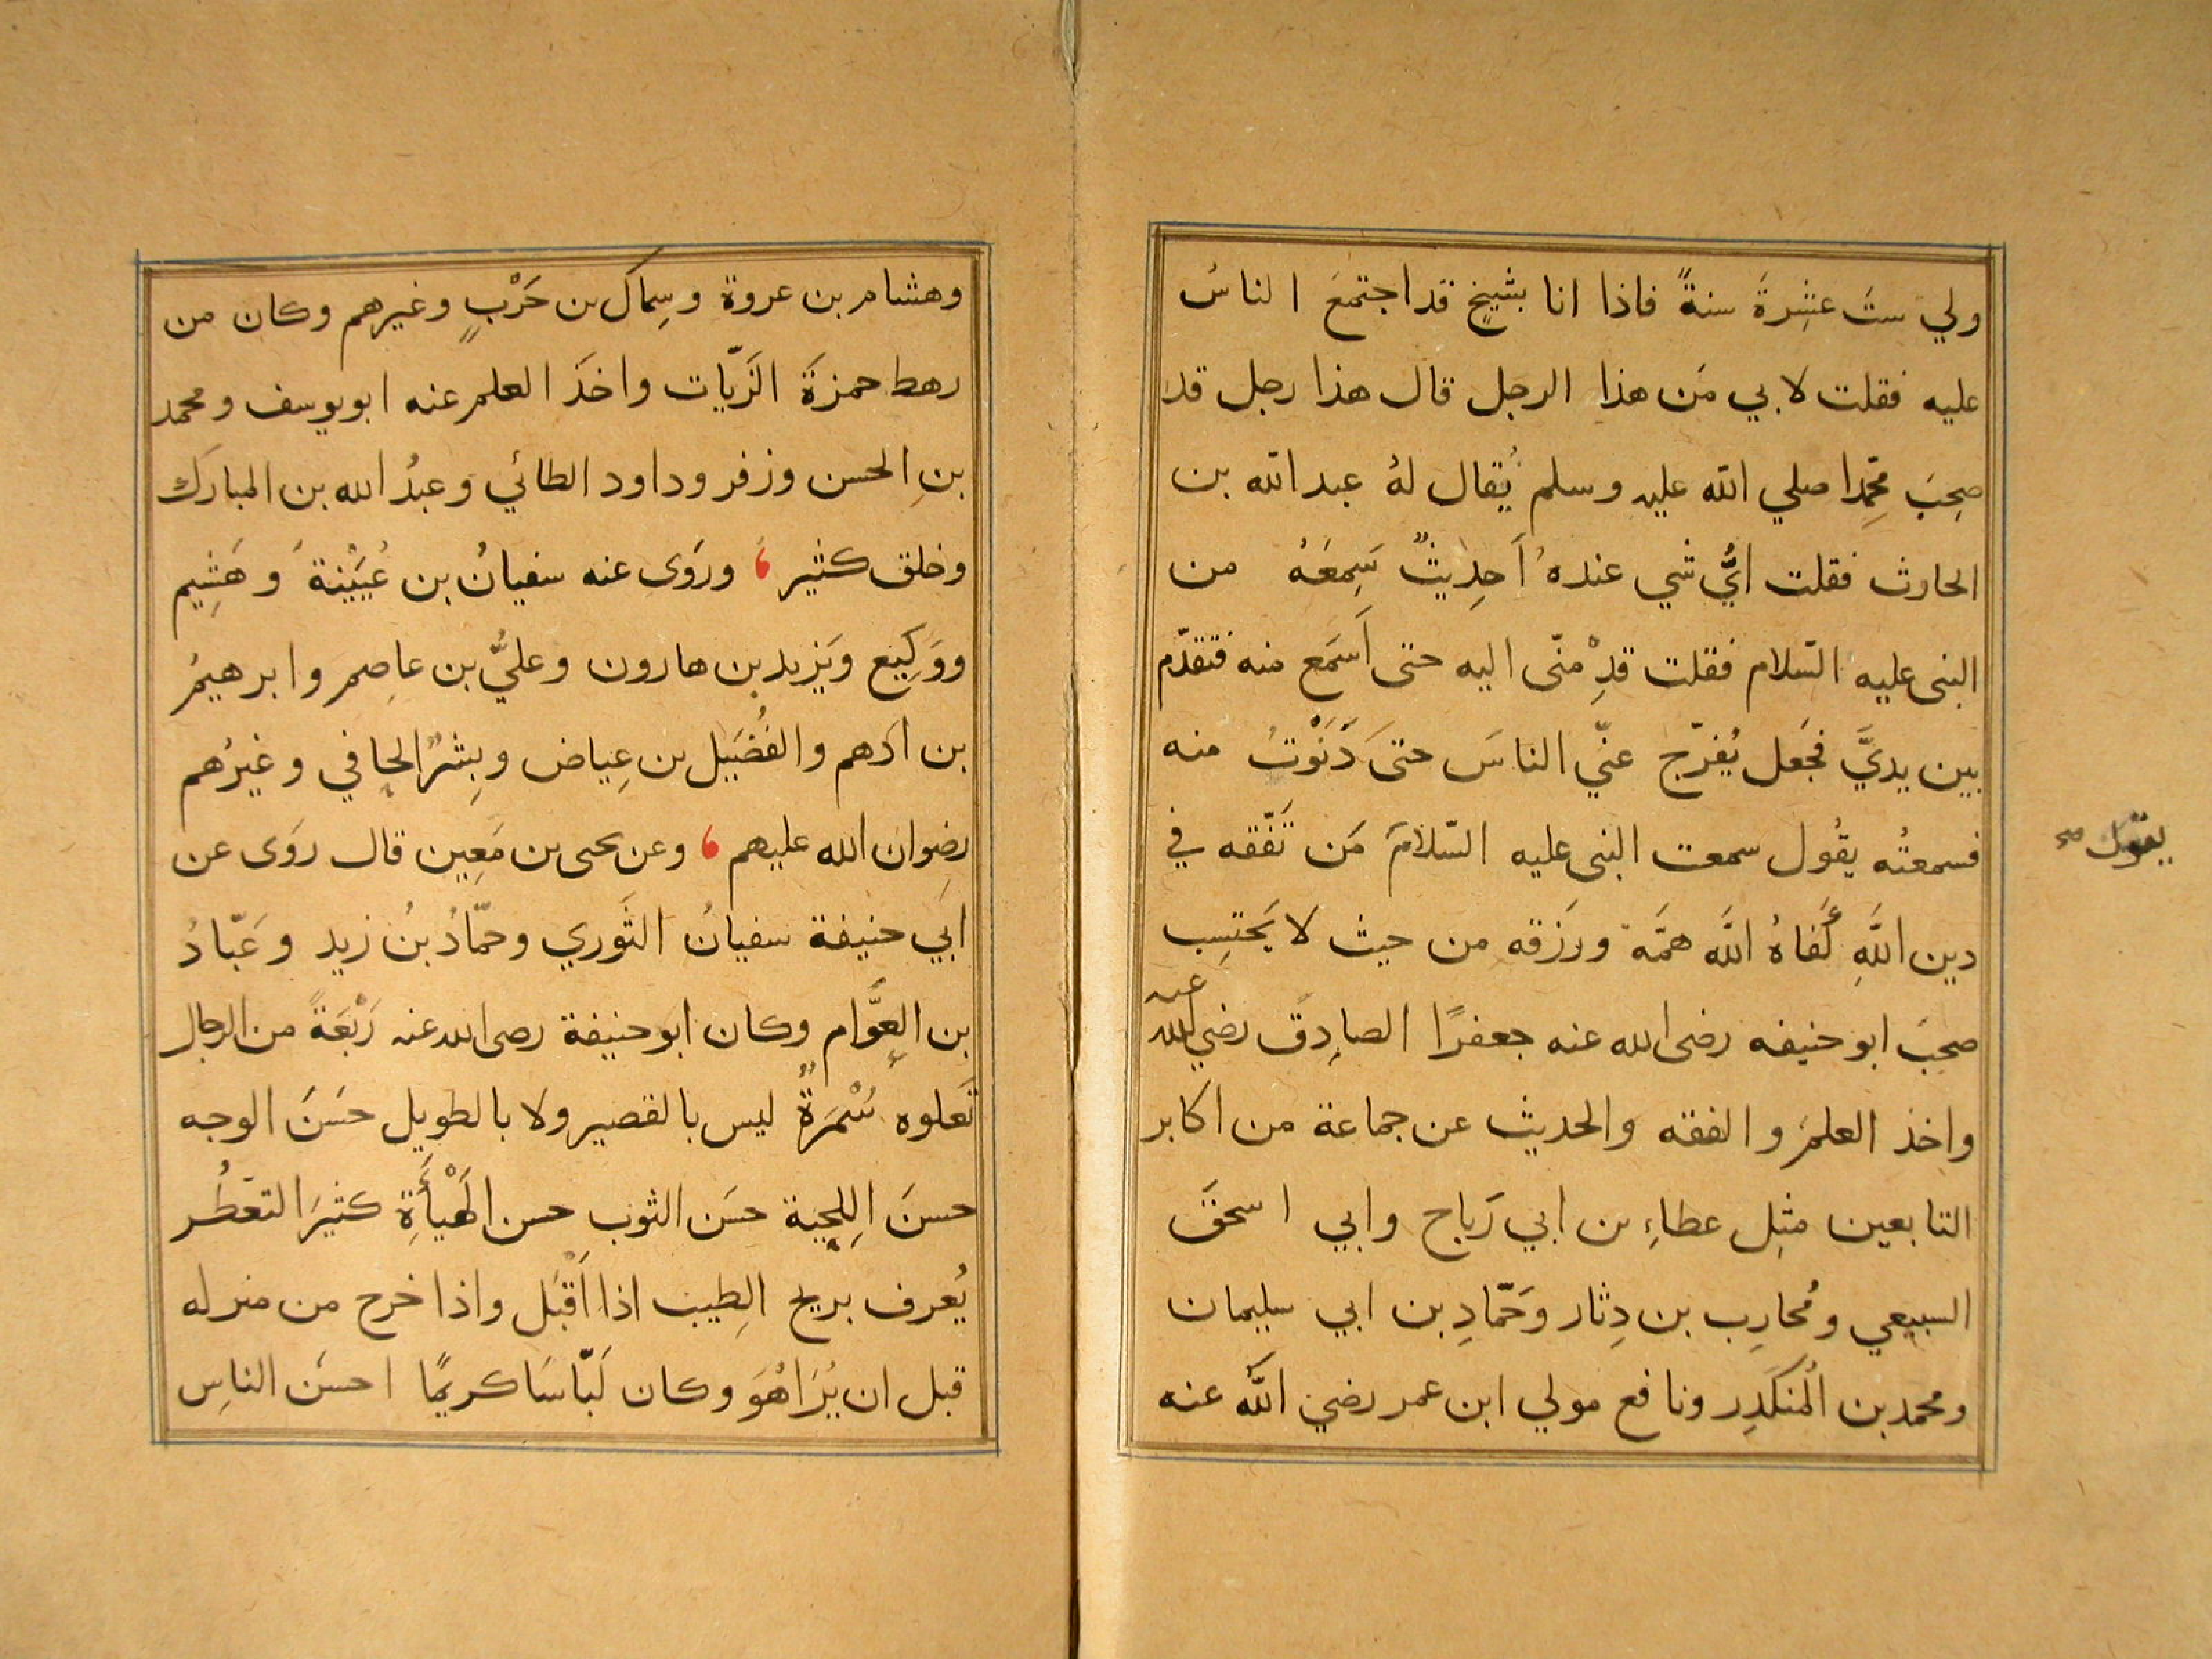 ولي ستَ عشِرةَ سنةً فاذا انا بشيخٍ قد اجتمعَ الناسُ
عليه فقلت لابي مَن هذا الرجل قال هذا رجل قد
صحِبَ محمِدا صلي الله عليه وسلم يُقال لهُ عبد الله بن
الحارث فقلت ايُّ شي عندهُ اَحدِيثٌ سَمِعَهُ من
النبى عليه السّلام فقلت قدِّمنّى اليه حتى اَسمَع منه فتقدّم
بين يديَّ فجَعل يُفرّج عنّي الناسَ حتىَ دَنَوْتُ منه
فسمعتُه يقُول سمعت النبى عليه السّلامَ مَن تَفّقه في
يقول صح
دين اللَّهِ كَفاهُ اللَّه همَّة ورَزقه من حيث لا يَحتسِب
صحِبَ ابو حنيفه رضى الله عنه جعفرًا الصادِقَ رضي الله عنه
واخذ العلمَ والفقه والحديث عن جماعة من اكابر
التابعين مثِل عطاءِ بن ابي رَباح وابي اسحقَ
السبيعي ومُحارِب بن دِثار وَحَمّادِ بن ابي سليمان
ومحمد بن المُنكَدِر ونافع مولي ابن عمر رضي اللَّه عنه
وهشام بن عروة وسِماكَ بن حَرْبٍ وغيرهم وكان من
رهط حمزةَ الزّيّات واخَذَ العلم عنه ابو يوسف ومحمد
بنِ الحسن وزفر وداود الطائي وعبدُ الله بن المبارَك
وخلق كثير ، وروَى عنه سفيانُ بن عُيَيْنةَ وَهَشِيم
ووَكِيع ويَزيد بن هارون وعليُّ بن عاصِم وابرهيمُ
بن ادَهم والفُضَيل بن عِياض وبِشرٌ الحافي وغيرُهم
رضوان الله عليهم ، وعن يحيى بن مَعِين قال روَى عن
ابَي حنيفة سفيانُ الثَوري وحمّادُ بنُ زيد وعَبّادُ
بن العَوَّام وكان ابو حنيفة رضى الله عنه رَبْعَةً من الرجال
تَعلوه سُمْرَةٌ ليس بالقصير ولا بالطويل حسَنَ الوجه
حسنَ اللِحية حسَن الثوب حسن الهَيْأَةِ كثيَر التعطُر
يُعرف بريح الطِيب اذا اَقْبَل واذا خرج من منزله
قبل ان يُرَاهُوَ وكان لَبّاسَا كريمًا احسَن الناسِ